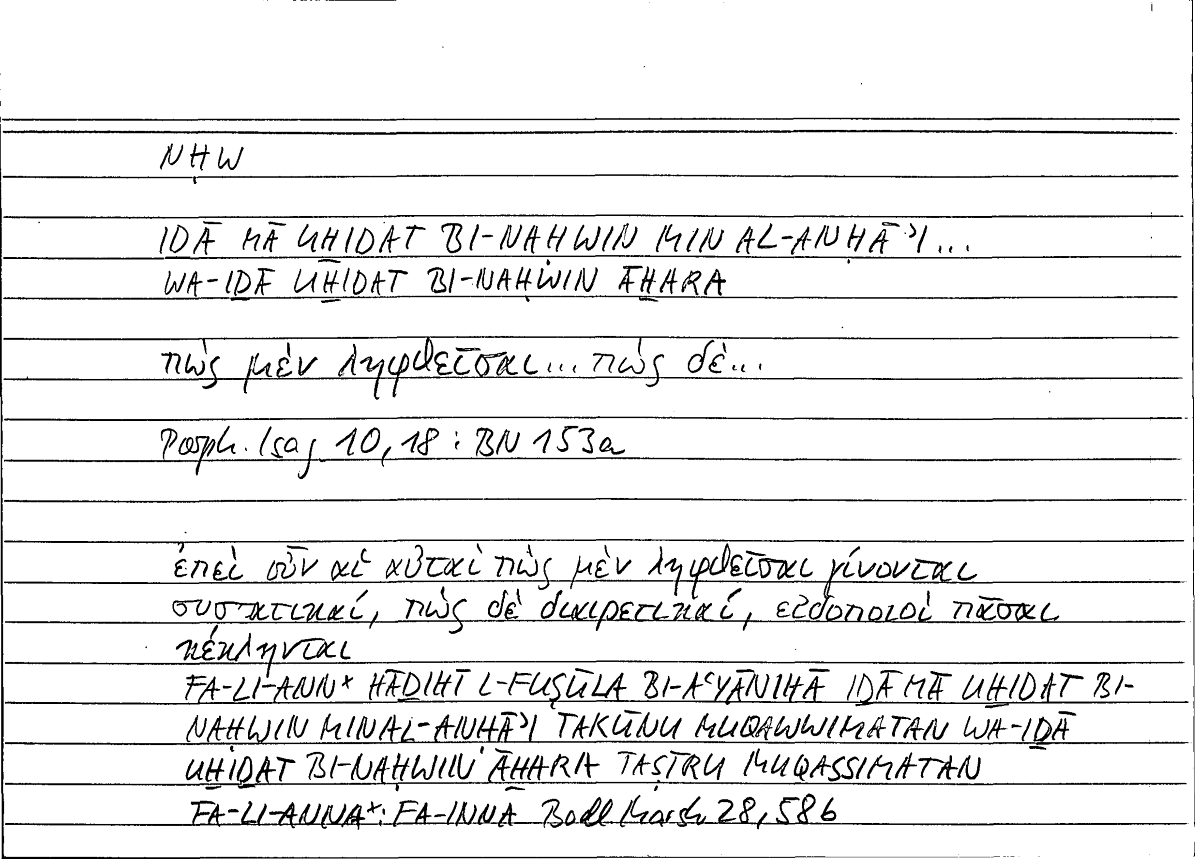 NḤW
IḎĀ MĀ UḪIḎAT BI-NAḤWIN MIN AL-ANḤĀʾI...
WA-IḎĀ UḪIḎAT BI-NAḤWIN ĀḪARA
πὼς μὲν ληφθεῖσαι... πὼς δὲ...
Porph. Isag 10,18 : BN 153a
ἐπεὶ οὖν αἱ αὐταὶ πὼς μὲν ληφθεῖσαι γίνονται
συστατικαί, πὼς δὲ διαιρετικαί, εἰδοποιοὶ πᾶσαι
κέκληνται
FA-LI-ANN* HĀḎIHĪ L-FUṢŪLA BI-AʿYĀNIHĀ IḎĀ MĀ UḪIḎAT BI-
NAḤWIN MIN AL-ANḤĀʾI TAKŪNU MUQAWWIMATAN WA-IḎĀ
UḪIḎAT BI-NAḤWIN ĀḪARA TAṢĪRU MUQASSIMATAN
FA-LI-ANNA*: FA-INNĀ Bodl Marsh 28,58b